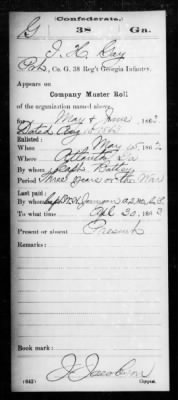 (Confederate.)
G 38 Ga.
J. H. Cay
Pvt., Co. G. 38 Reg't Georgia Infantry.
Appears on
Company Muster Roll
of the organization named above,
for May & June 1863
Dated Aug 10 1863
Enlisted:
When May 15, 1862
Where Atlanta Ga
By whom Capt. Battey
Period Three Years or the War
Last paid:
By whom Capt
To what time Apl 30, 1863
Present or absent Present
Remarks:
Book mark:
J. Jacobson
(642) Copyist.